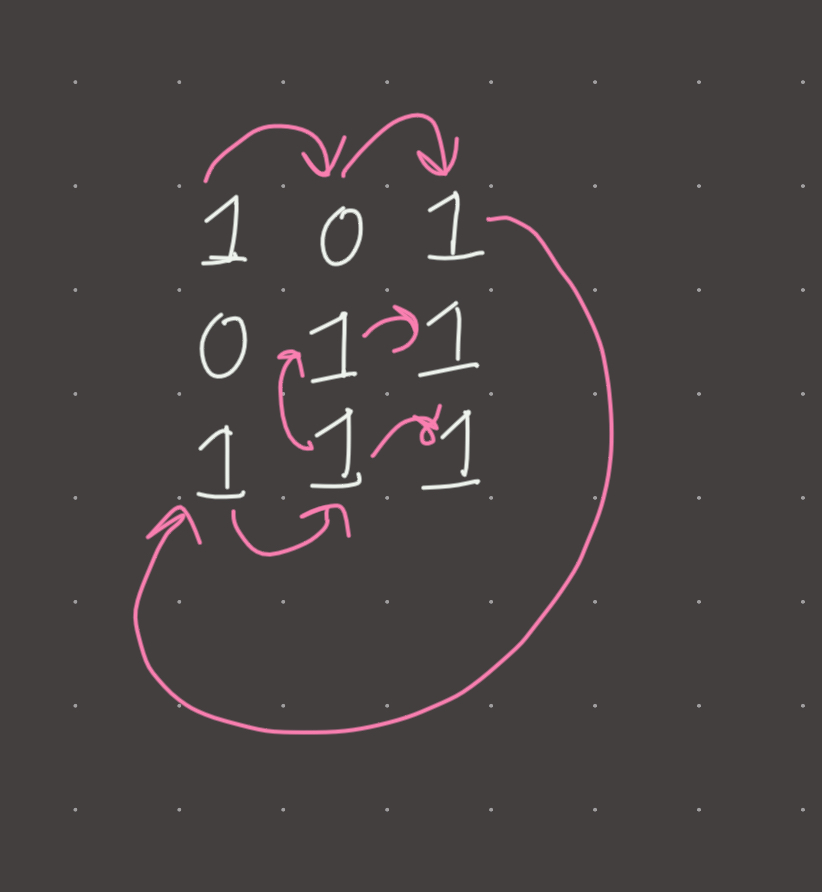 1 0 1
0 1 1
1 1 1